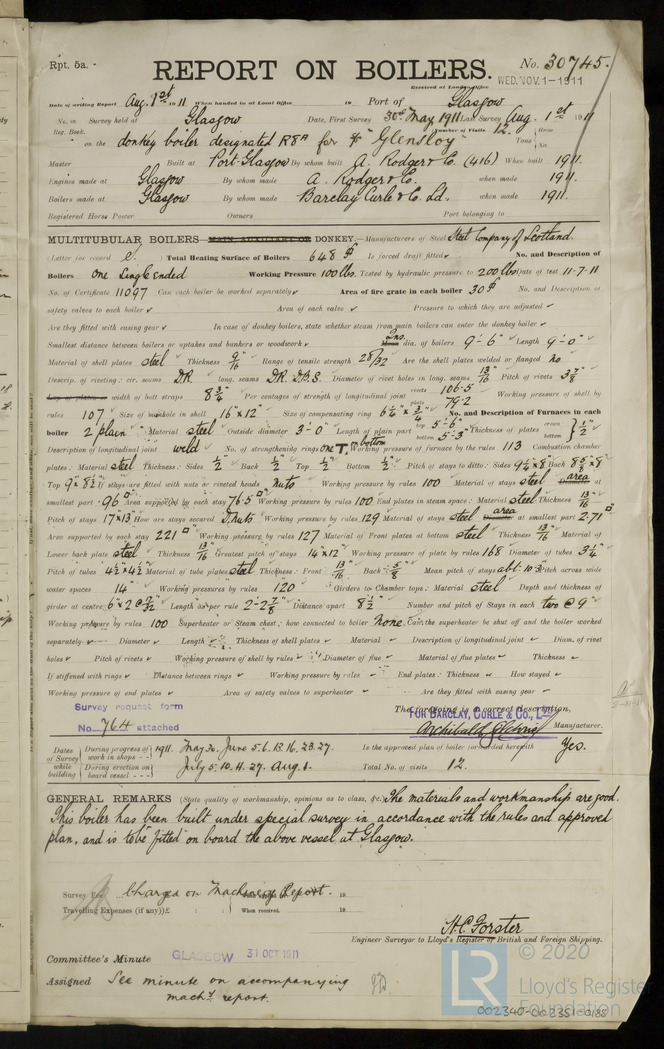 Rpt. 5a.
REPORT ON BOILERS.
No. 30745.
Received at London Office
WED. NOV. 1 - 1911
Date of writing Report Aug. 1st 1911 When handed in at Local Office 19 Port of Glasgow
No. in Survey held at Glasgow Date, First Survey 30th May 1911 Last Survey Aug. 1st 1911
Reg. Book. Number of Visits 12
on the donkey boiler designated for "Glenstroy" Tons Gross Net
Master Built at Port-Glasgow By whom built A. Rodger & Co. (416) When built 1911.
Engines made at Glasgow By whom made A. Rodger & Co. when made 1911.
Boilers made at Glasgow By whom made Barclay Curle & Co. Ld. when made 1911.
Registered Horse Power Owners Port belonging to
MULTITUBULAR BOILERS MAIN, AUXILIARY OR DONKEY.—Manufacturers of Steel Steel Company of Scotland.
(Letter for record e.) Total Heating Surface of Boilers 648 Is forced draft fitted No. and Description of
Boilers One Single Ended Working Pressure 100 lbs. Tested by hydraulic pressure to 200 lbs Date of test 11-7-11
No. of Certificate 11097 Can each boiler be worked separately Area of fire grate in each boiler 30 No. and Description of
safety valves to each boiler Area of each valve Pressure to which they are adjusted
Are they fitted with easing gear In case of donkey boilers, state whether steam from main boilers can enter the donkey boiler
Smallest distance between boilers or uptakes and bunkers or woodwork Mean Ins. dia. of boilers 9'-6" Length 9'-0"
Material of shell plates steel Thickness 9/16 Range of tensile strength 28/32 Are the shell plates welded or flanged no
Descrip. of riveting: cir. seams D.R. long. seams D.R. D.B.S. Diameter of rivet holes in long. seams 13/16 Pitch of rivets 3 7/8
Lap of plates or width of butt straps 8 3/4 Per centages of strength of longitudinal joint rivets 106.5 plate 79.2 Working pressure of shell by
rules 107 Size of manhole in shell 16" x 12" Size of compensating ring 6 1/4" x 3/4 No. and Description of Furnaces in each
boiler 2 plain Material steel Outside diameter 3'-0" Length of plain part top 5'-6" bottom 5'-3" Thickness of plates crown bottom 1/2"
Description of longitudinal joint weld No. of strengthening rings one T. on bottom Working pressure of furnace by the rules 113 Combustion chamber
plates: Material steel Thickness: Sides 1/2 Back 1/2 Top 1/2 Bottom 1/2 Pitch of stays to ditto: Sides 9 1/4 x 8 Back 8 5/8 x 8
Top 9 x 8 1/2 If stays are fitted with nuts or riveted heads nuts Working pressure by rules 100 Material of stays steel area at
smallest part .96 Area supported by each stay 76.5 Working pressure by rules 100 End plates in steam space: Material steel Thickness 13/16
Pitch of stays 17 x 13 How are stays secured D. nuts Working pressure by rules 129 Material of stays steel area at smallest part 2.71
Area supported by each stay 221 Working pressure by rules 127 Material of Front plates at bottom steel Thickness 13/16 Material of
Lower back plate steel Thickness 13/16 Greatest pitch of stays 14 x 12 Working pressure of plate by rules 168 Diameter of tubes 3 1/4
Pitch of tubes 4 1/2 x 4 1/2 Material of tube plates steel Thickness: Front 13/16 Back 5/8 Mean pitch of stays abt. 10.3 Pitch across wide
water spaces 14" Working pressures by rules 120 Girders to Chamber tops: Material steel Depth and thickness of
girder at centre 6 x 2 @ 7/32 Length as per rule 2'-2 7/8" Distance apart 8 1/2 Number and pitch of Stays in each two @ 9"
Working pressure by rules 100 Superheater or Steam chest; how connected to boiler None Can the superheater be shut off and the boiler worked
separately Diameter Length Thickness of shell plates Material Description of longitudinal joint Diam. of rivet
holes Pitch of rivets Working pressure of shell by rules Diameter of flue Material of flue plates Thickness
If stiffened with rings Distance between rings Working pressure by rules End plates: Thickness How stayed
Working pressure of end plates Area of safety valves to superheater Are they fitted with easing gear
Survey request form
No. 764 attached
The foregoing is a correct description,
FOR BARCLAY, CURLE & CO., LTD
Manufacturer.
Dates of Survey while building During progress of work in shops - - 1911. May 30. June 5. 6. 13. 16. 23. 27.
During erection on board vessel - - - July 5. 10. 11. 27. Aug. 1.
Is the approved plan of boiler forwarded herewith Yes.
Total No. of visits 12.
GENERAL REMARKS (State quality of workmanship, opinions as to class, &c. The materials and workmanship are good.
This boiler has been built under special survey in accordance with the rules and approved
plan, and is to be fitted on board the above vessel at Glasgow.
Survey Fee Charged on Machinery Report. 19
Travelling Expenses (if any) £ : : When received. 19
H. C. Forster
Engineer Surveyor to Lloyd's Register of British and Foreign Shipping.
Committee's Minute GLASGOW 31 OCT 1911
Assigned See minute on accompanying
machy report.
© 2020
LR
Lloyd's Register
Foundation
002340-002351-0188